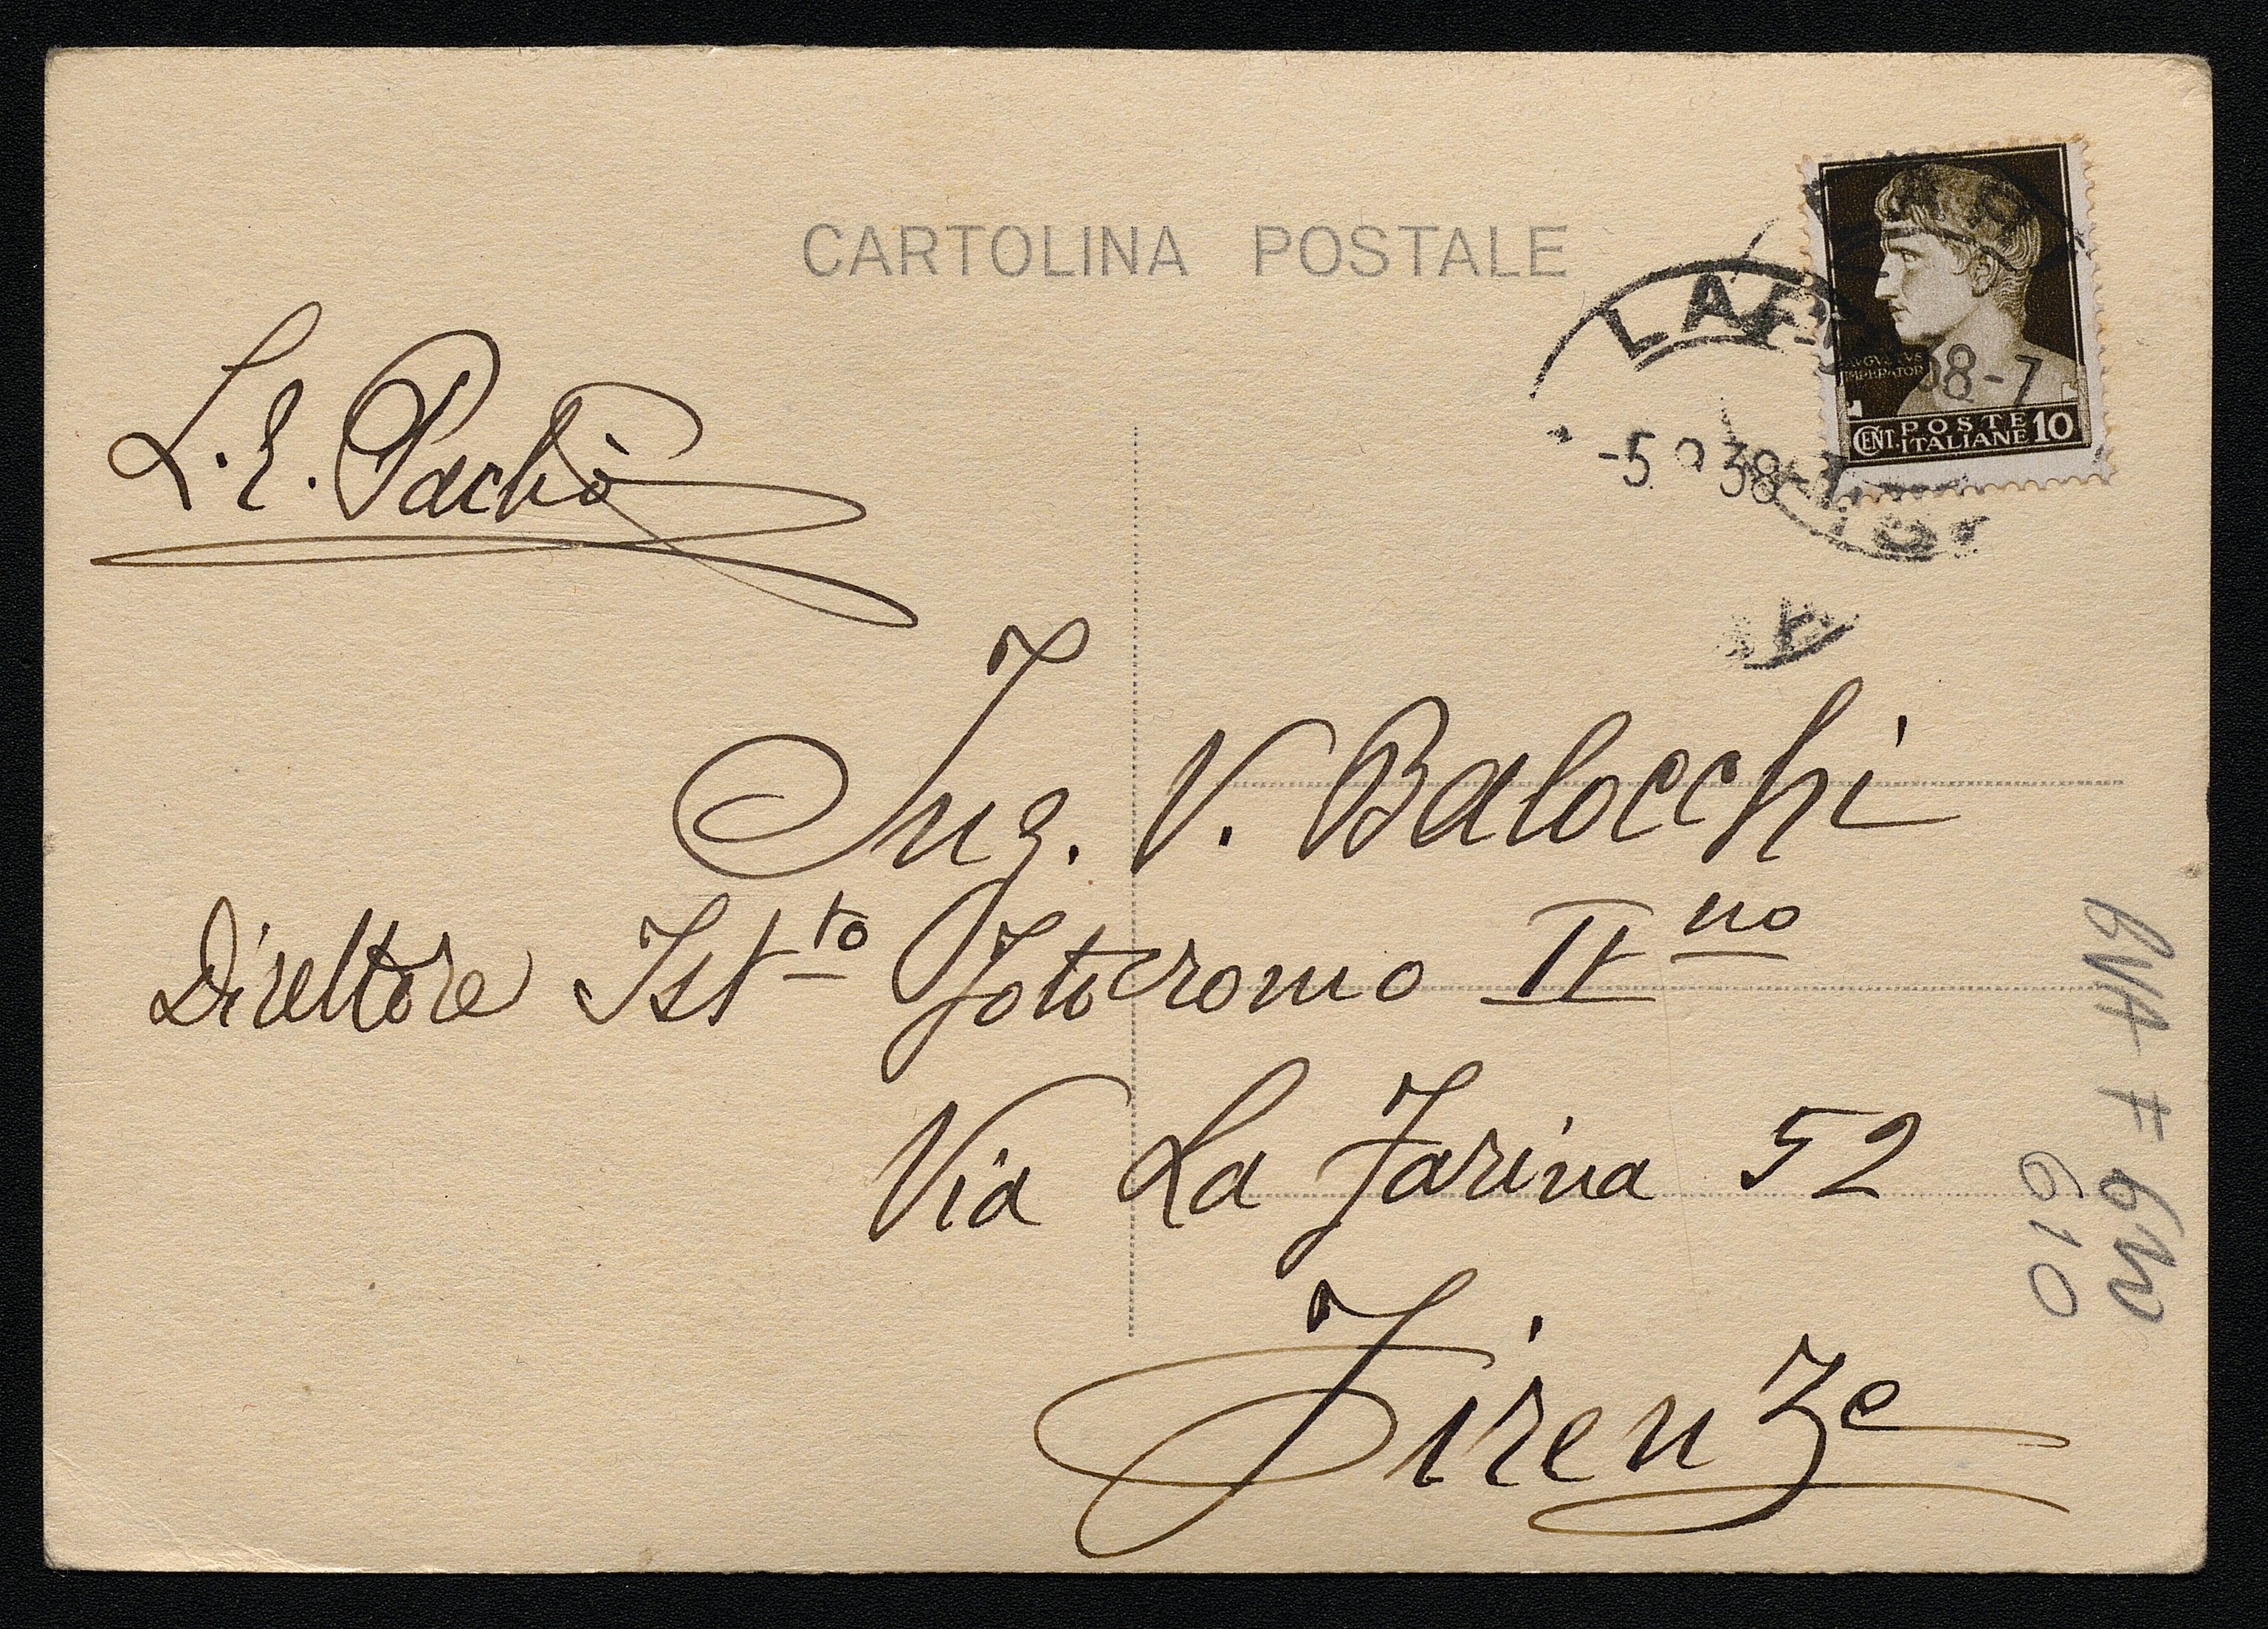 CARTOLINA POSTALE
AUGUSTUS
IMPERATOR
CENT. POSTE ITALIANE 10
38-7
-5 9 38-7
L. E. Pachò
Ing. V. Balocchi
Direttore Ist.to Fotocromo It.no
Via La Farina 52
Firenze
610